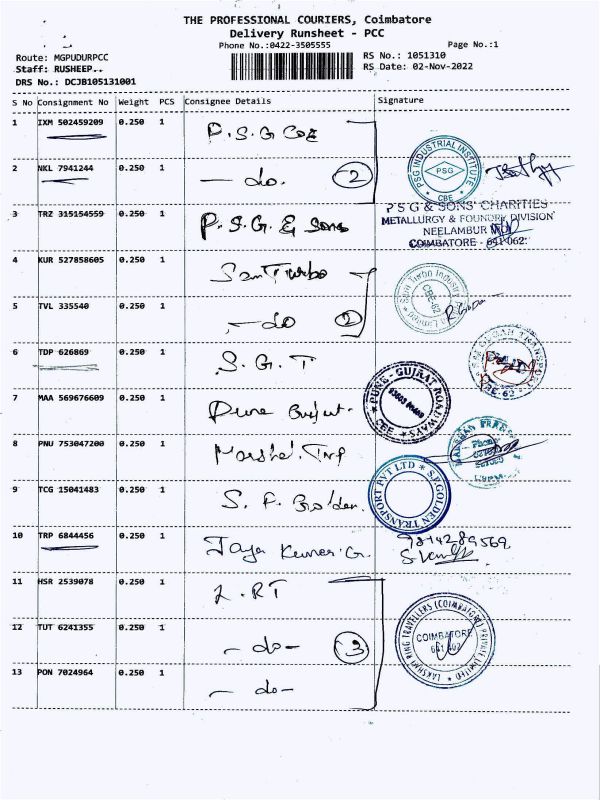 THE PROFESSIONAL COURIERS, Coimbatore
Delivery Runsheet - PCC
Phone No.:0422-3505555
Page No.:1
Route: MGPUDURPCC
RS No.: 1051310
Staff: RUSHEEP..
RS Date: 02-Nov-2022
DRS No.: DCJB105131001
S No Consignment No Weight PCS Consignee Details Signature
1 IXM 502459209 0.250 1 P.S.G CoE
2 NKL 7941244 0.250 1 - do. 2
PSG INDUSTRIAL INSTITUTE
PSG
CBE
3 TRZ 315154559 0.250 1 P.S.G. & Sons
PSG & SONS' CHARITIES
METALLURGY & FOUNDRY DIVISION
NEELAMBUR
COIMBATORE - 641 062.
4 KUR 527858605 0.250 1 Sam Turbo
5 TVL 335540 0.250 1 - do 2
Sam Turbo Industry
CBE-62
6 TDP 626869 0.250 1 S.G.T
TRANSPORT
CBE-62
7 MAA 569676609 0.250 1 Pune Gujrat.
PUNE - GUJRAT ROADWAYS
CBE
8 PNU 753047200 0.250 1
9 TCG 15041483 0.250 1 S.F. Golden.
S.F.GOLDEN TRANSPORT PVT LTD
10 TRP 6844456 0.250 1 Jaya Kumar.G.
11 HSR 2539078 0.250 1 L.RT
12 TUT 6241355 0.250 1 - do - 3
LAKSHMI RING TRAVELLERS (COIMBATORE) PRIVATE LIMITED
COIMBATORE
13 PON 7024964 0.250 1 - do -